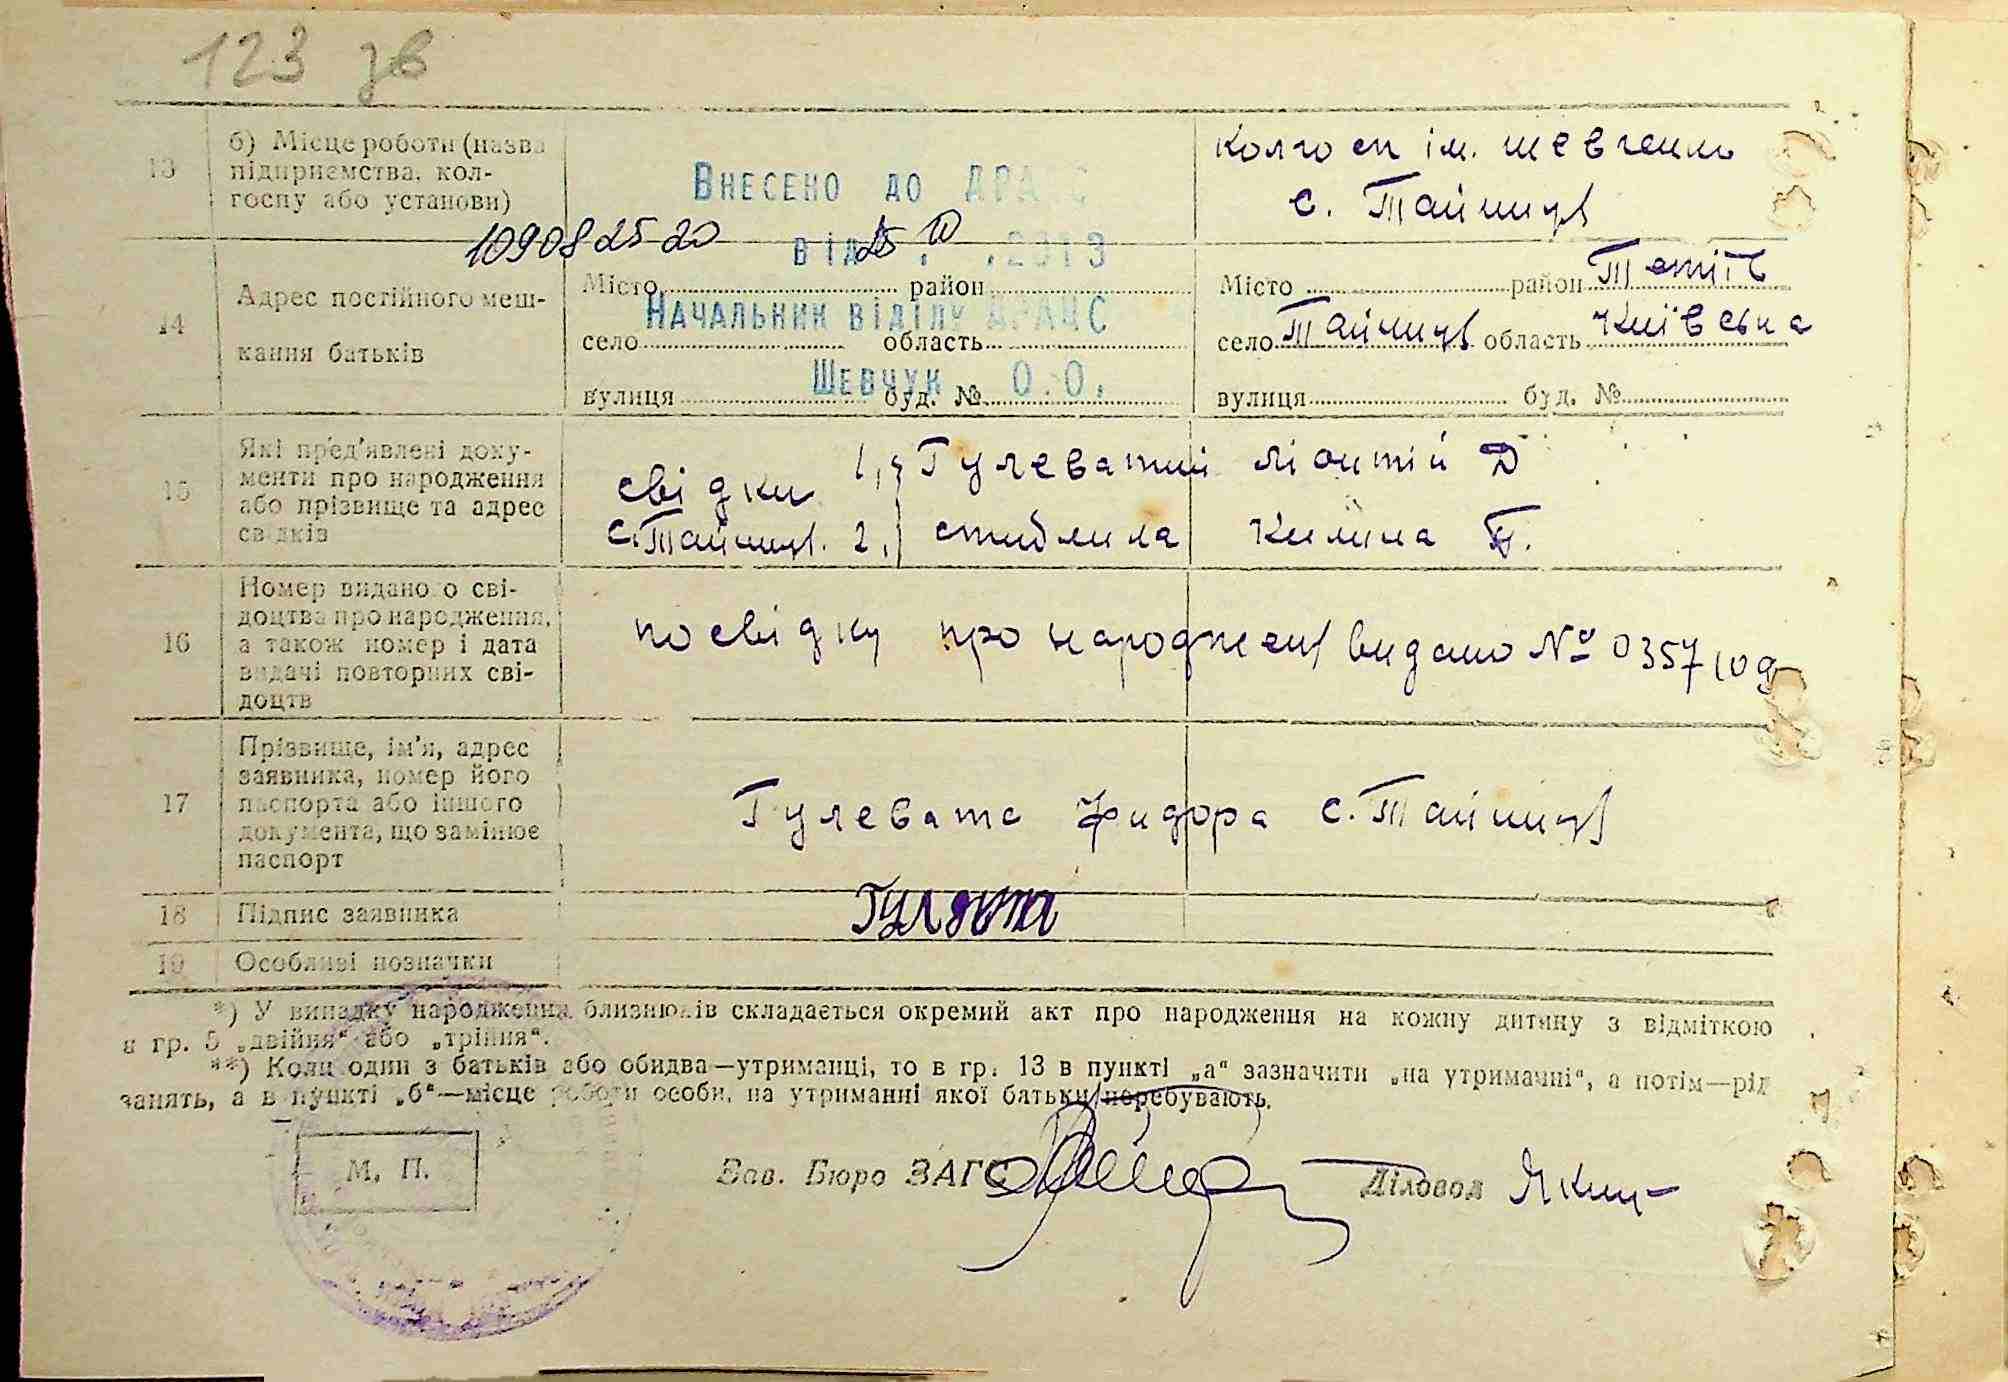 123 зв
13 б) Місце роботи (назва підприємства, колгоспу або установи)
колгосп ім. шевченка
с. Тайниця
Внесено до ДРАЦС
1090825 20
від 25 .2013
Начальник відділу ДРАЦС
Шевчук О.О.
14 Адрес постійного мешкання батьків
Місто район
село область
вулиця буд. №
Місто район Тетіїв
село Тайниця область Київська
вулиця буд. №
15 Які пред'явлені документи про народження або прізвище та адрес свідків
свідки 1, Гулеватий Ліонтій Д
с. Тайниця. 2, Килина П.
16 Номер видано о свідоцтва про народження, а також номер і дата видачі повторних свідоцтв
посвідку про народження видано № 0357
17 Прізвище, ім'я, адрес заявника, номер його паспорта або іншого документа, що замінює паспорт
Гулевата Фидора с. Тайниця
18 Підпис заявника
19 Особливі позначки
*) У випадку народження близнюків складається окремий акт про народження на кожну дитину з відміткою
в гр. 5 „двійня“ або „трійня“.
**) Коли один з батьків або обидва—утриманці, то в гр. 13 в пункті „а“ зазначити „на утриманні“, а потім—рід
занять, а в пункті „б“—місце роботи особи, на утриманні якої батьки перебувають.
М. П.
Зав. Бюро ЗАГС
Діловод